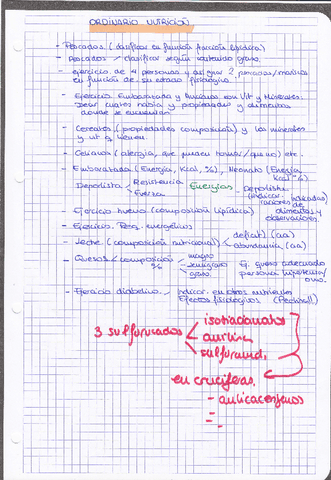 ORDINARIO NUTRICIÓN
- Pescados (clasificar en función fracción lipídica)
- Pescados / clasificar según contenido graso.
- Ejercicio de 4 personas y asignar 2 personas/
en función de su estado fisiológico.
- Ejercicio Embarazada y fumadora con Vit y Minerales:
Decir cuales había y propiedades y alimentos
donde se encuentran
- Cereales (propiedades composición) y los minerales
y vit q tienen.
- Celiaca (alergia, que pueden tomar/que no) etc.
- Embarazada (Energía, Kcal, %), Neonato (Energía,
Kcal %)
Deportista Resistencia
Fuerza
Energías.
Deportista
(indicar indicadas)
raciones de
alimentos y
observaciones.
- Ejercicio huevos (composición lipídica)
- Ejercicio. Req. energéticos
- Leche (composición nutricional) deficit (aa)
abundancia (aa)
- Quesos / composición magro
% semigraso
graso.
Ej. queso adecuado
persona hipertensa/
- Ejercicio diabético. / indicar en otros nutrientes
Efectos fisiológicos
3 sulfurados isotiocianatos
sulforund.
en crucíferas.
- anticacerjenos
-
-